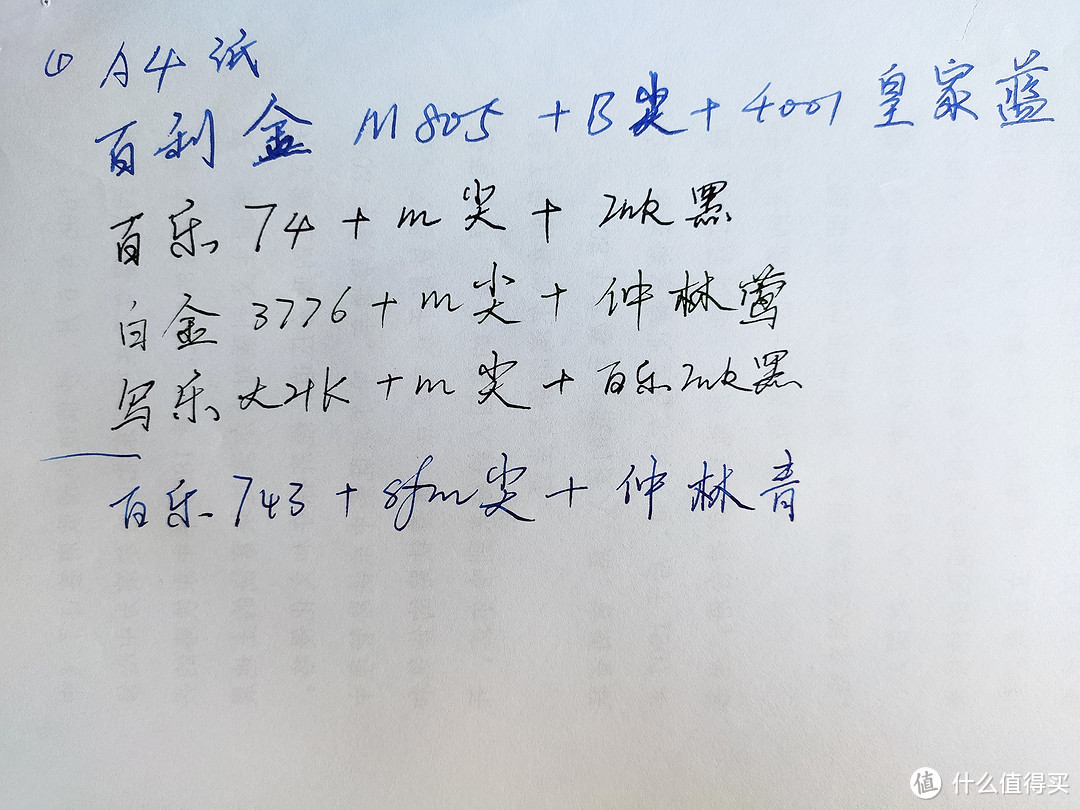 ① A4纸
百利金 M805 + B尖 + 4001 皇家蓝
百乐 74 + m尖 + ink黑
白金 3776 + m尖 + 仲林莺
写乐大21K + m尖 + 百乐ink黑
百乐 743 + sfm尖 + 仲林青
值 什么值得买